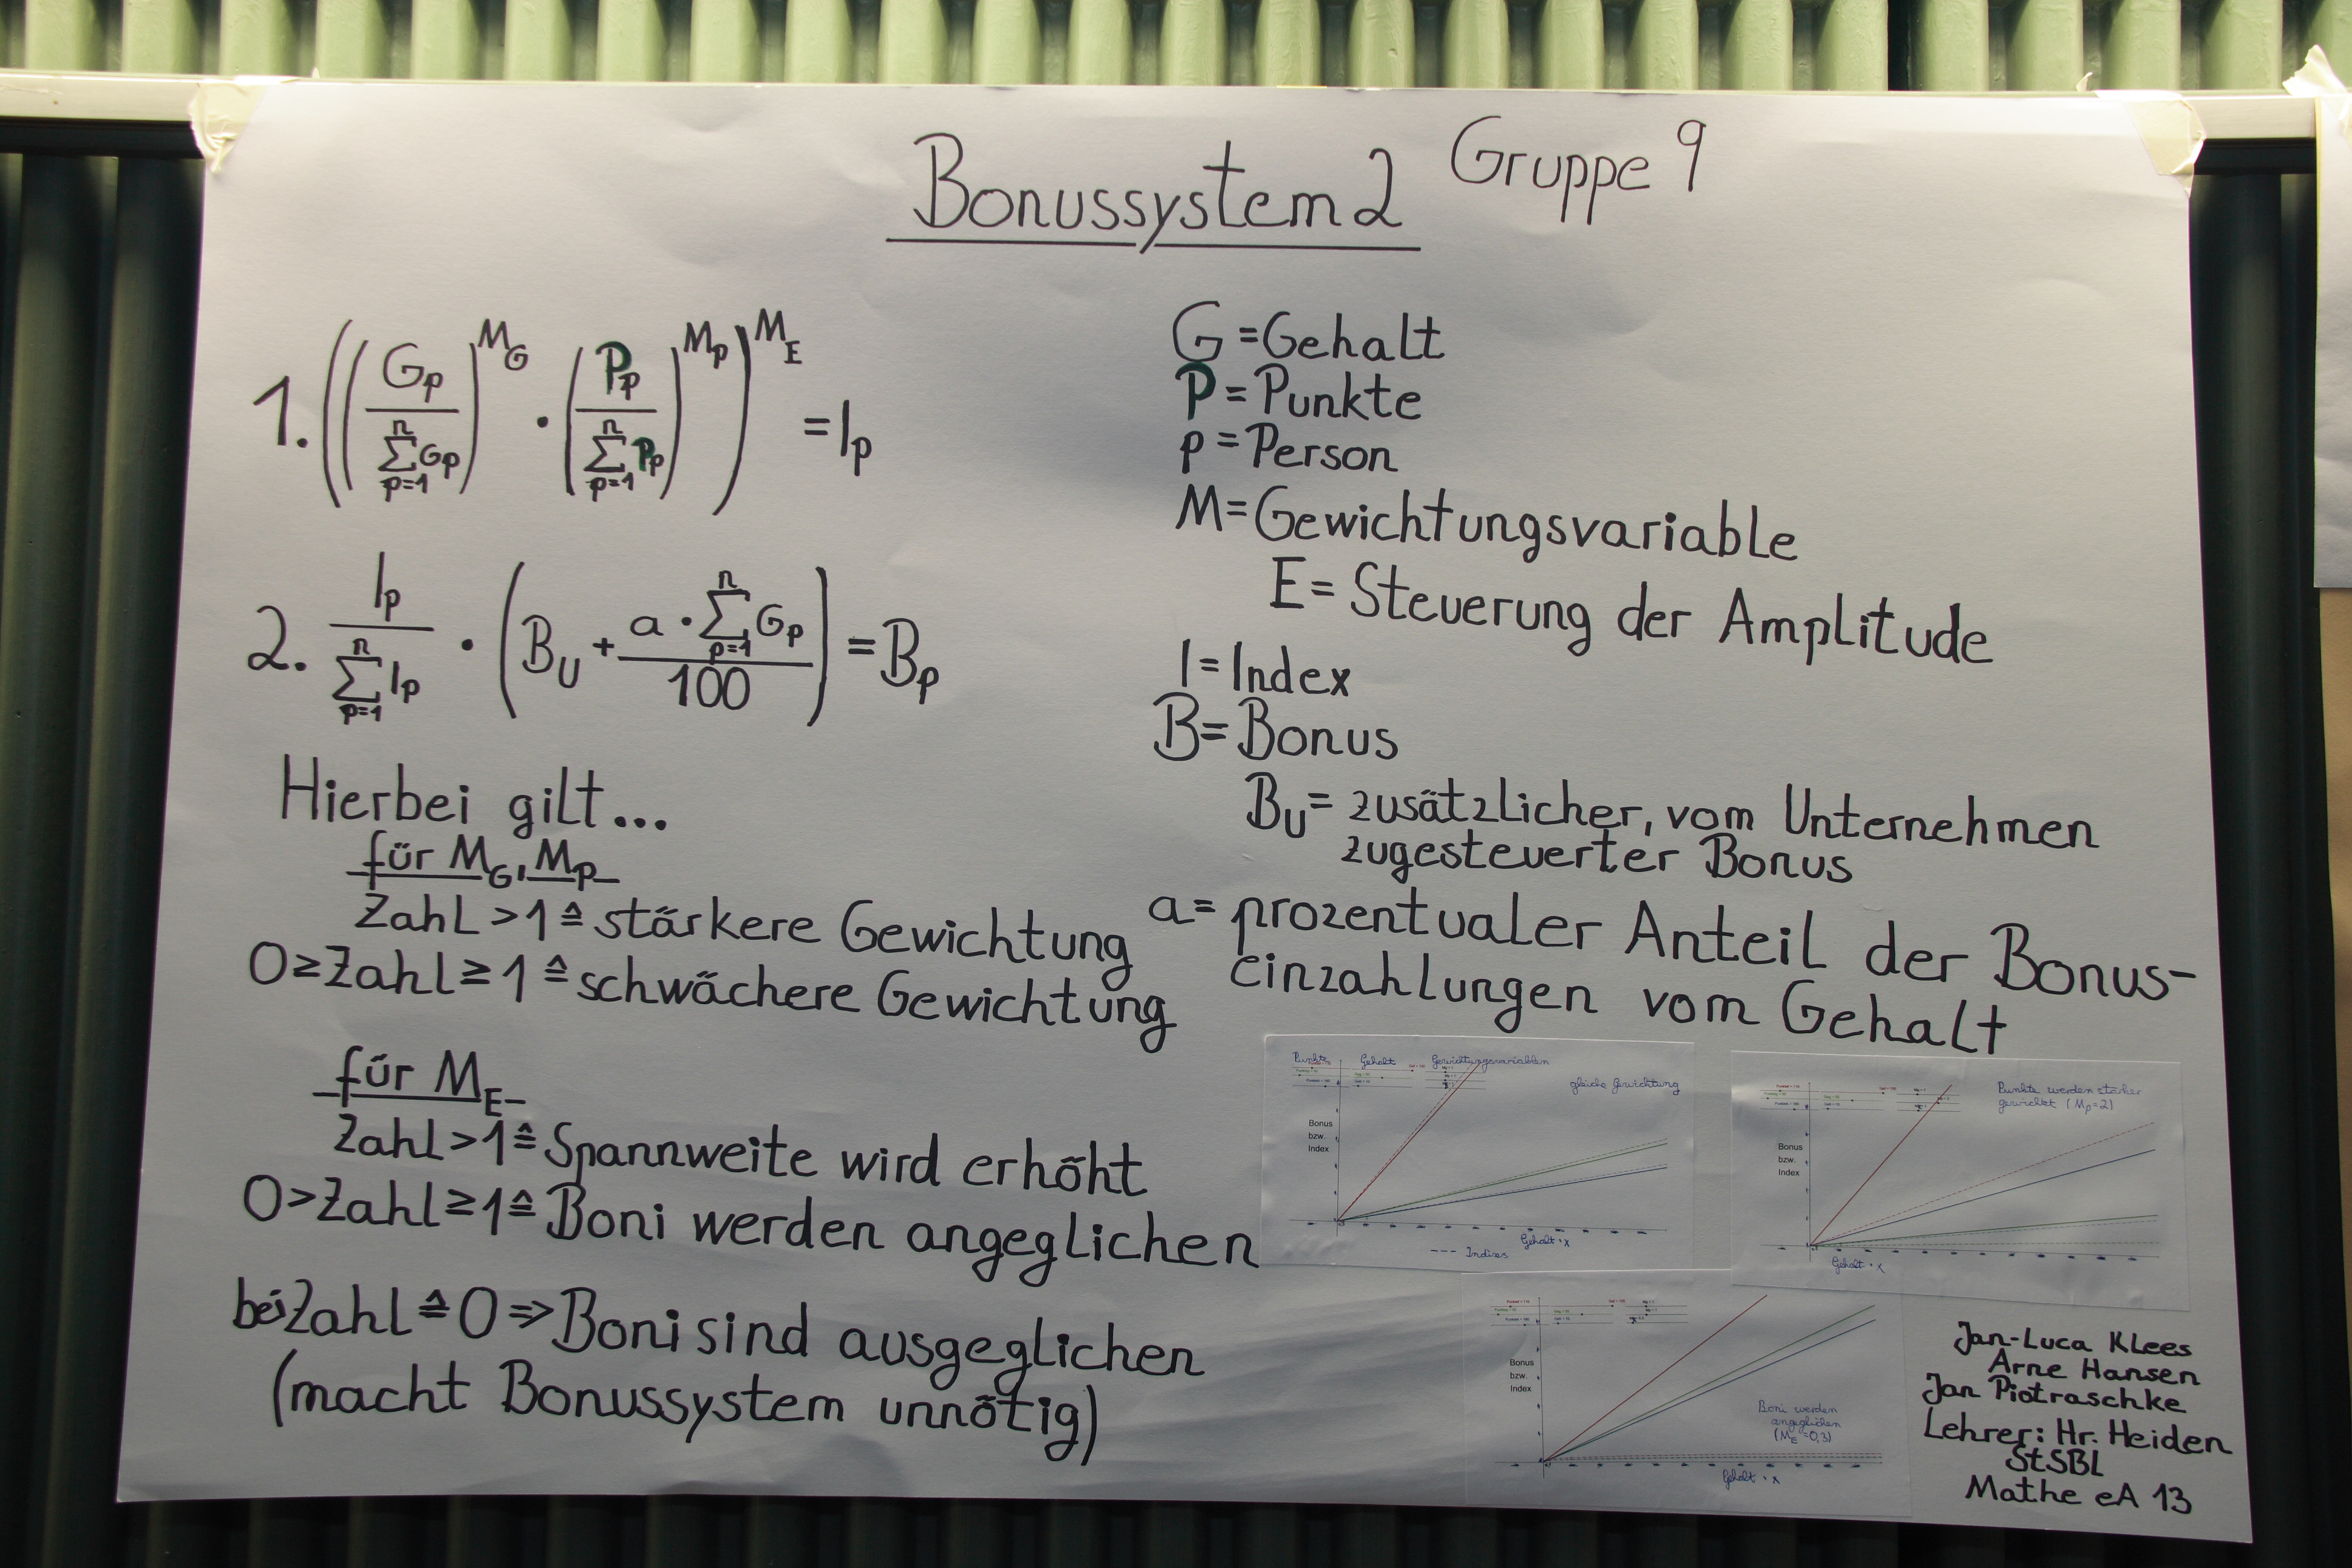 Bonussystem 2 Gruppe 9
1. ((G_p / Σ_{p=1}^{n} G_p)^{M_G} · (P_p / Σ_{p=1}^{n} P_p)^{M_p})^{M_E} = I_p
2. I_p / Σ_{p=1}^{n} I_p · (B_U + a · Σ_{p=1}^{n} G_p / 100) = B_p
Hierbei gilt...
für M_G, M_P
Zahl > 1 ≙ stärkere Gewichtung
0 ≥ Zahl ≥ 1 ≙ schwächere Gewichtung
für M_E
Zahl > 1 ≙ Spannweite wird erhöht
0 > Zahl ≥ 1 ≙ Boni werden angeglichen
bei Zahl ≙ 0 ⇒ Boni sind ausgeglichen
(macht Bonussystem unnötig)
G = Gehalt
P = Punkte
p = Person
M = Gewichtungsvariable
E = Steuerung der Amplitude
I = Index
B = Bonus
B_U = zusätzlicher, vom Unternehmen
zugesteuerter Bonus
a = prozentualer Anteil der Bonus-
einzahlungen vom Gehalt
Punkte Gehalt Gewichtungsvariablen
gleiche Gewichtung
Bonus
bzw.
Index
Gehalt · x
--- Indizes
Punkte werden stärker
gewichtet (M_P=2)
Bonus
bzw.
Index
Gehalt · x
Bonus
bzw.
Index
Boni werden
angeglichen
(M_E=0,3)
Gehalt · x
Jan-Luca Klees
Arne Hansen
Jan Piotraschke
Lehrer: Hr. Heiden
StSBL
Mathe eA 13